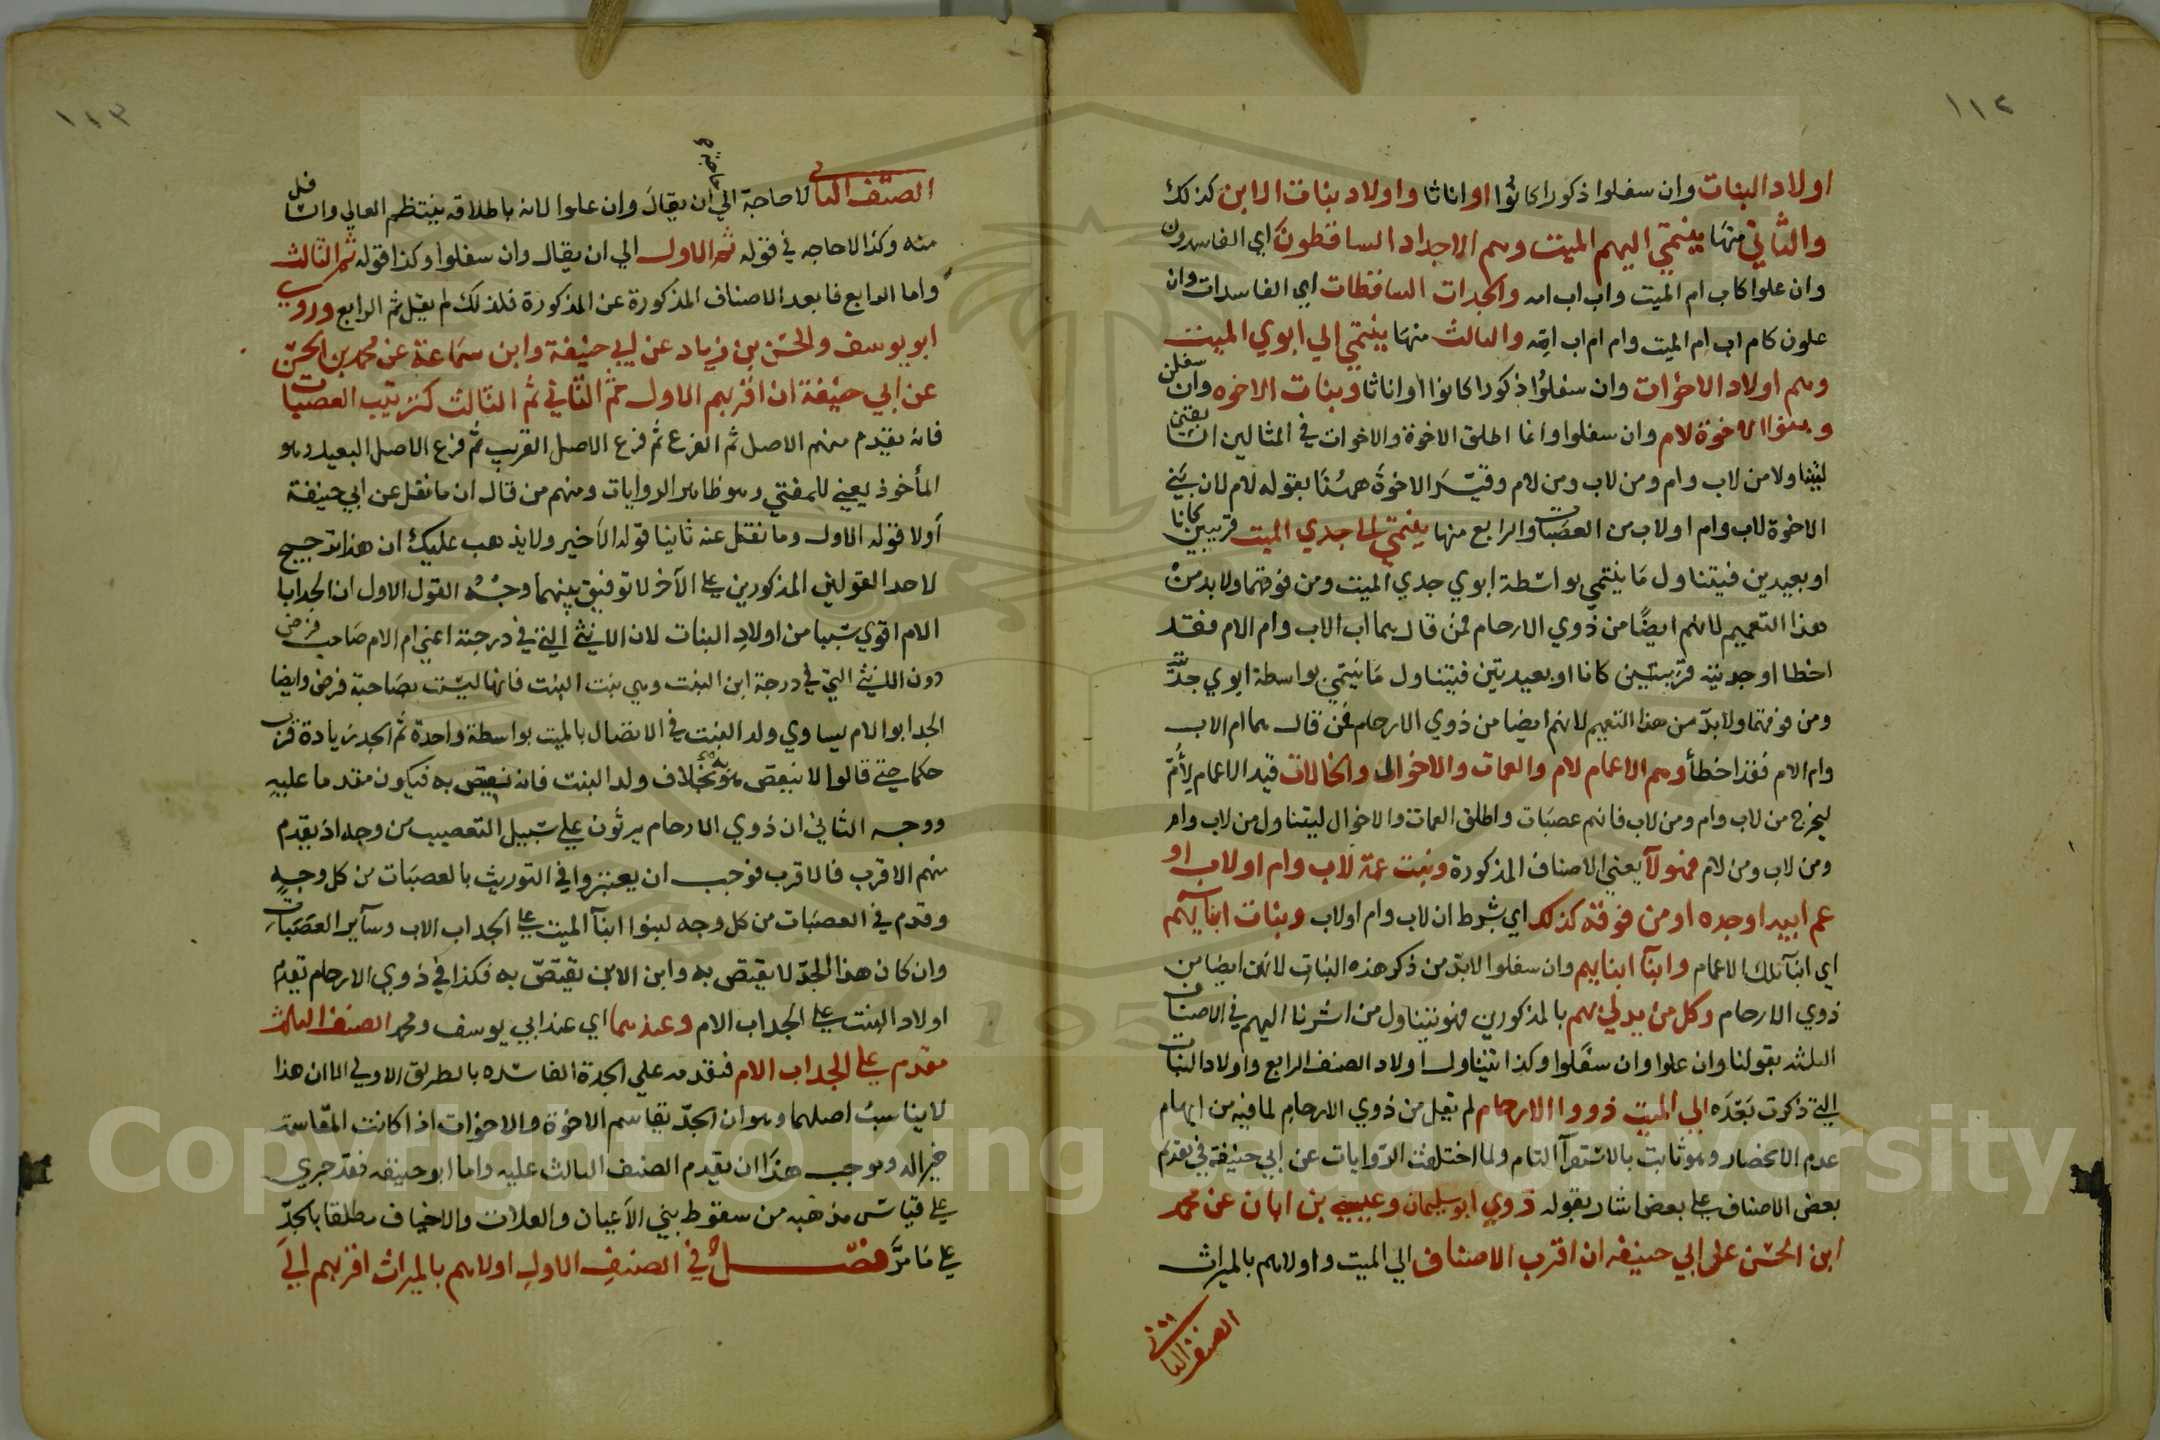 ١١٢
اولاد البنات وان سفلوا ذكورا كانوا او اناثا واولاد بنات الابن كذلك
والثاني منها ينتمي اليهم الميت وهم الاجداد الساقطون اي الفاسدون
وان علوا كاب ام الميت واب اب امه والجدات الساقطات اي الفاسدات وان
علون كام اب ام الميت وام ام اب امه والثالث منها ينتمي الي ابوي الميت
وهم اولاد الاخوات وان سفلوا ذكورا كانوا او اناثا وبنات الاخوه وان سفلن
وبنوا الاخوة لام وان سفلوا وانما اطلق الاخوة والاخوات في المثالين
ليتناولا من لاب وام ومن لاب ومن لام وقيد الاخوة ههنا بقوله لام لان بني
الاخوة لاب وام او لاب من العصبات والرابع منها ينتمي الى جدي الميت قريبين كانا
او بعيدين فيتناول ما ينتمي بواسطة ابوي جدي الميت ومن فوقهما ولا بد من
هذا التعميم لانهم ايضا من ذوي الارحام فمن قال هما اب الاب وام الام فقد
اخطا او جدتيه قريبتين كانا او بعيدتين فيتناول ما ينتمي بواسطة ابوي
ومن فوقهما ولا بد من هذا التعميم لانهم ايضا من ذوي الارحام فمن قال هما ام الاب
وام الام فقد اخطأ وهم الاعمام لام والعمات والاخوال والخالات قيد الاعمام لأم
ليخرج من لاب وام ومن لاب فانهم عصبات واطلق العمات والاخوال ليتناول من لاب وام
ومن لاب ومن لام فهولآ يعني الاصناف المذكورة وبنت عمة لاب وام او لاب او
عم ابيه او جده او من فوقه كذلك اي بشرط ان لاب وام او لاب وبنات ابنايهم
اي ابنآ تلك الاعمام وابنآ ابنايهم وان سفلوا لابد من ذكر هذه البنات لانهن ايضا من
ذوي الارحام وكل من يدلي بهم بالمذكورين فهو يتناول من اشرنا اليهم في الاصناف
الثلثه بقولنا وان علوا وان سفلوا وكذا يتناول اولاد الصنف الرابع واولاد البنات
التي ذكرت بعده الي الميت ذووا الارحام لم يقل من ذوي الارحام لما فيه من ايهام
عدم الانحصار وهو ثابت بالاستقرآ التام ولما اختلفت الروايات عن ابي حنيفة في تقدم
بعض الاصناف على بعض اشار بقوله فروي ابو سليمان وعيسى بن ابان عن محمد
ابن الحسن عن ابي حنيفه ان اقرب الاصناف الي الميت واولاهم بالميراث
الصنف الثاني
١١٣
الصنف الثاني لا حاجة الي ان يقال وان علوا لانه باطلاقه ينتظم العالي والسافل
منه وكذا لا حاجه في قوله ثم الاول الي ان يقال وان سفلوا وكذا قوله ثم الثالث
واما الرابع فابعد الاصناف المذكورة عن المذكورة فلذلك لم يقل ثم الرابع وروي
ابو يوسف والحسن بن زياد عن ابي حنيفة وابن سماعة عن محمد بن الحسن
عن ابي حنيفة ان اقربهم الاول ثم الثاني ثم الثالث كترتيب العصبات
فانه يقدم منهم الاصل ثم الفرع ثم فرع الاصل القريب ثم فرع الاصل البعيد وهو
المأخوذ يعني للمفتي وهو ظاهر الروايات ومنهم من قال ان ما نقل عن ابي حنيفة
أولا قوله الاول وما نقل عنه ثانيا قوله الأخير ولا يذهب عليك ان هذا ترجيح
لاحد القولين المذكورين على الآخر لا توفيق بينهما وجه القول الاول ان الجد ابا
الام اقوي سببا من اولاد البنات لان الانثى التي في درجته اعني ام الام صاحب فرض
دون الانثى التي في درجة ابن البنت وهي بنت البنت فانها ليست بصاحبة فرض وايضا
الجد ابو الام يساوي ولد البنت في الاتصال بالميت بواسطة واحدة ثم الجد زيادة قرب
حكما حتى قالوا لا يقتص به بخلاف ولد البنت فانه يقتص به فيكون مقدما عليه
ووجه الثاني ان ذوي الارحام يرثون على سبيل التعصيب من وجه اذ يقدم
منهم الاقرب فالاقرب فوجب ان يعتبروا في التوريث بالعصبات من كل وجه
وقدم في العصبات من كل وجه لبنوا ابنآ الميت على الجد اب الاب وسآير العصبات
وان كان هذا الجد لا يقتص به وابن الابن يقتص به فكذا في ذوي الارحام تقدم
اولاد البنت على الجد اب الام وعندهما اي عند ابي يوسف ومحمد الصنف الثالث
مقدم على الجد اب الام فتقدمه علي الجدة الفاسده بالطريق الاولي الا ان هذا
لا يناسب اصلهما وهو ان الجد يقاسم الاخوة والاخوات اذا كانت المقاسمة
خيرا له وموجب هذا ان يقدم الصنف الثالث عليه واما ابو حنيفه فقد جري
على قياس مذهبه من سقوط بني الأعيان والعلات والاخياف مطلقا بالجد
على ما مر فصل في الصنف الاول اولاهم بالميراث اقربهم الي
Copyright © King Saud University
1957